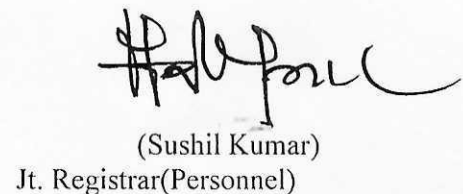 (Sushil Kumar)
Jt. Registrar(Personnel)